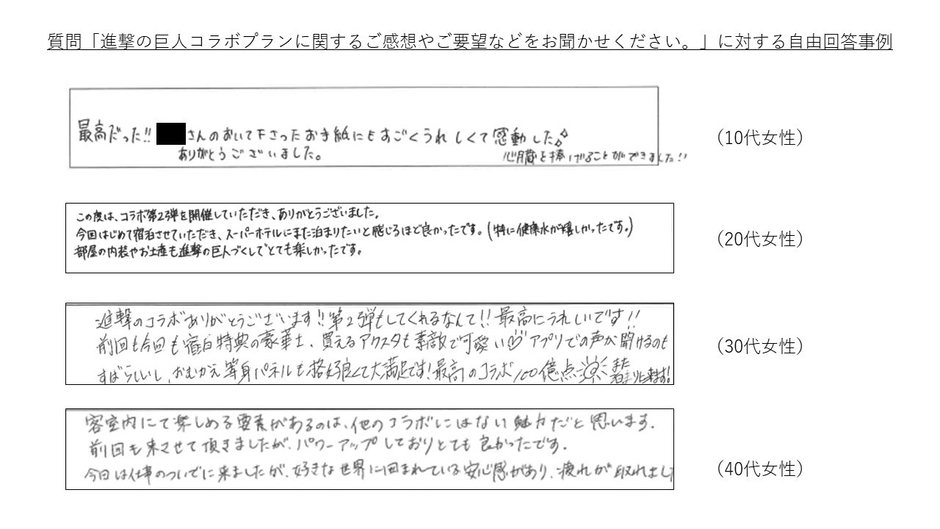 質問「進撃の巨人コラボプランに関するご感想やご要望などをお聞かせください。」に対する自由回答事例
最高だった!! さんのおいて下さったお手紙にもすごくうれしくて感動した。
ありがとうございました。
心臓を捧げることができました!!
（10代女性）
この度は、コラボ第2弾を開催していただき、ありがとうございました。
今回はじめて宿泊させていただき、スーパーホテルにまた泊まりたいと感じるほど良かったです。(特に健康水が嬉しかったです。)
部屋の内装やお土産も進撃の巨人づくしでとても楽しかったです。
（20代女性）
進撃のコラボありがとうございます!! 第2弾もしてくれるなんて!! 最高にうれしいです!!
前回も今回も宿泊特典の豪華さ、買えるアクスタも素敵で可愛い♡アプリでの声が聞けるのも
すばらしいし、おむかえ等身パネルも格好良くて大満足です!最高のコラボ100億点
（30代女性）
客室内にて楽しめる要素があるのは、他のコラボにはない魅力だと思います。
前回も来させて頂きましたが、パワーアップしておりとても良かったです。
今回は仕事のついでに来ましたが、好きな世界に囲まれている安心感があり、疲れが取れまし
（40代女性）